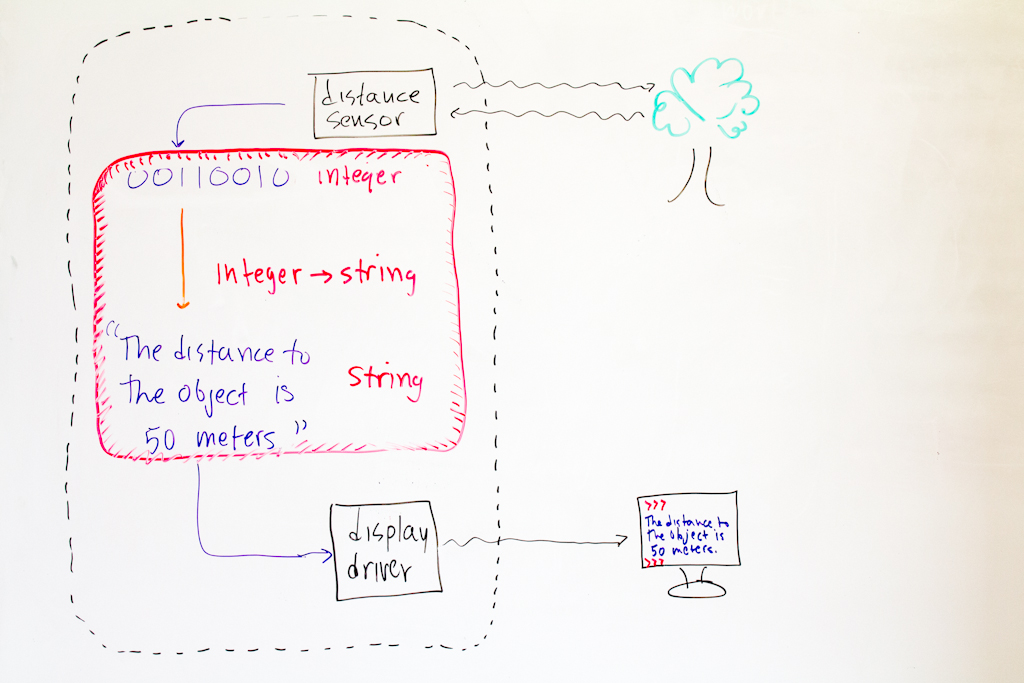 distance
sensor
00110010 integer
Integer → string
"The distance to
the object is
50 meters"
string
display
driver
>>>
The distance to
the object is
50 meters.
>>>